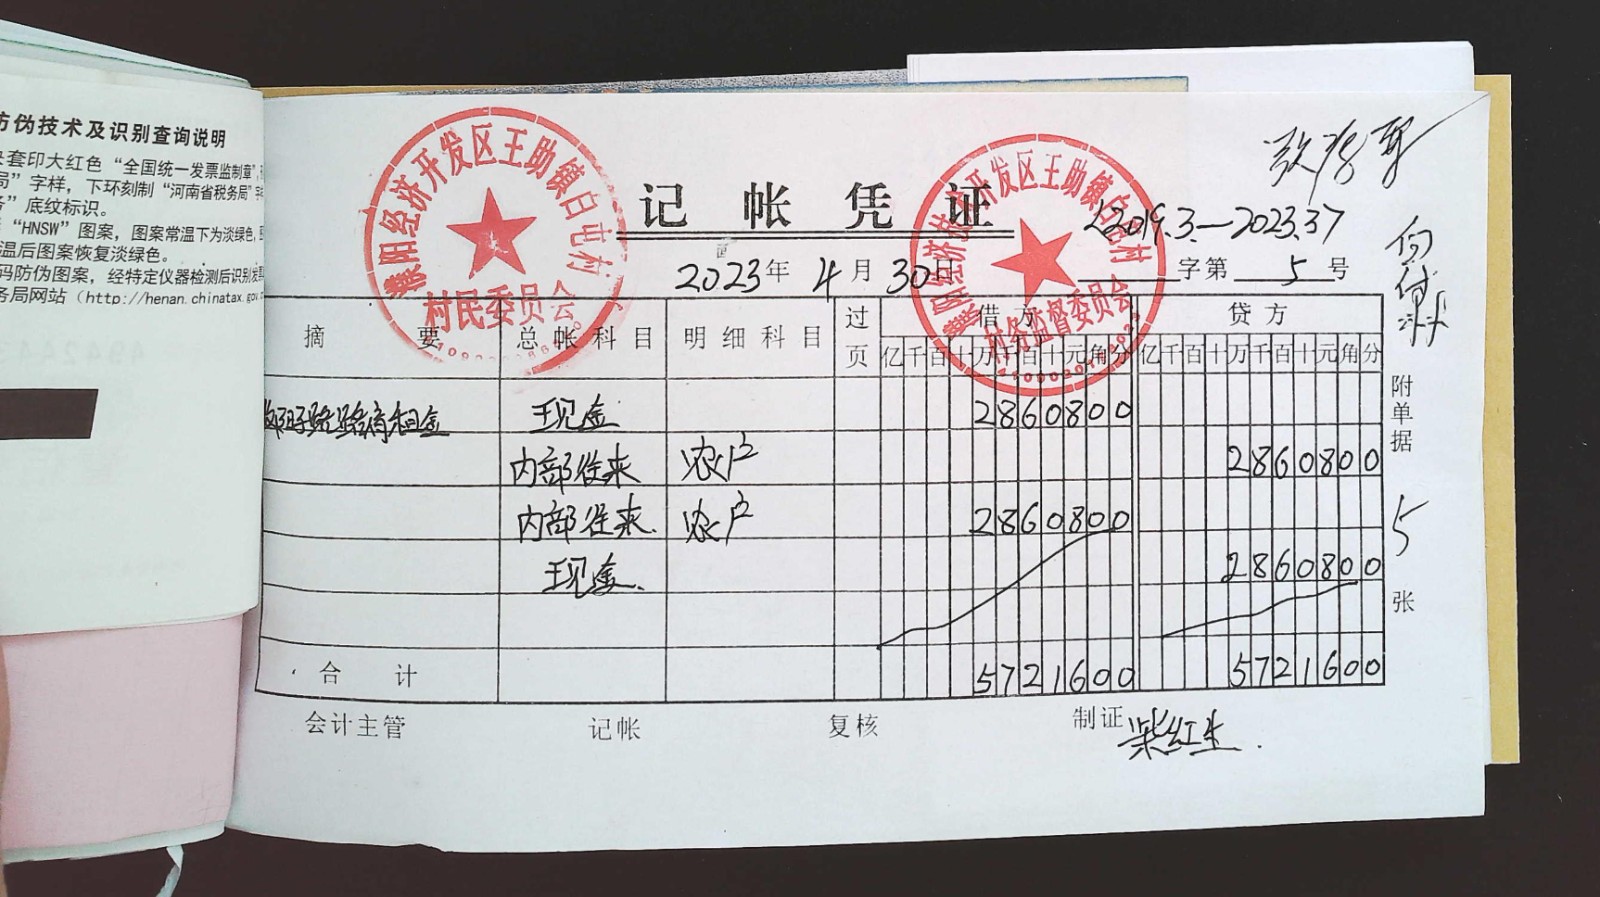 防伪技术及识别查询说明
套印大红色“全国统一发票监制章”,
局”字样，下环刻制“河南省税务局”字
”底纹标识。
“HNSW”图案，图案常温下为淡绿色，
温后图案恢复淡绿色。
码防伪图案，经特定仪器检测后识别
务局网站（http://henan.chinatax.gov.
濮阳经济开发区王助镇白屯村
村民委员会
濮阳经济技术开发区王助镇白屯村
村务监督委员会
记帐凭证
2019.3.—2023.37
2023年 4月 30日
字第 5 号
摘要 总帐科目 明细科目 过页 借方 贷方
亿千百十万千百十元角分 亿千百十万千百十元角分
租金 现金 2860800
内部往来 农户 2860800
内部往来. 农户 2860800
现金. 2860800
合计 5721600 5721600
附单据 5 张
会计主管 记帐 复核 制证 柴红生.